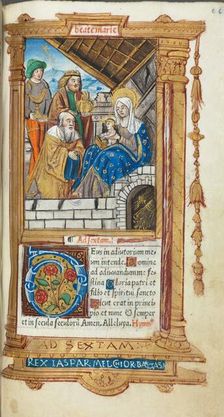 beate marie
Ad sextam.
Eus in adiutorium meum
intende. Domine
ad adiuuandum me fes
tina Gloria patri et
filio et spiritui sancto
Sicut erat in princi
pio et nunc et semper
et in secula seculorũ Amen. Alleluya. Hymn⁹
AD SEXTAM
REX IASPAR MELCHIOR BALTASAR